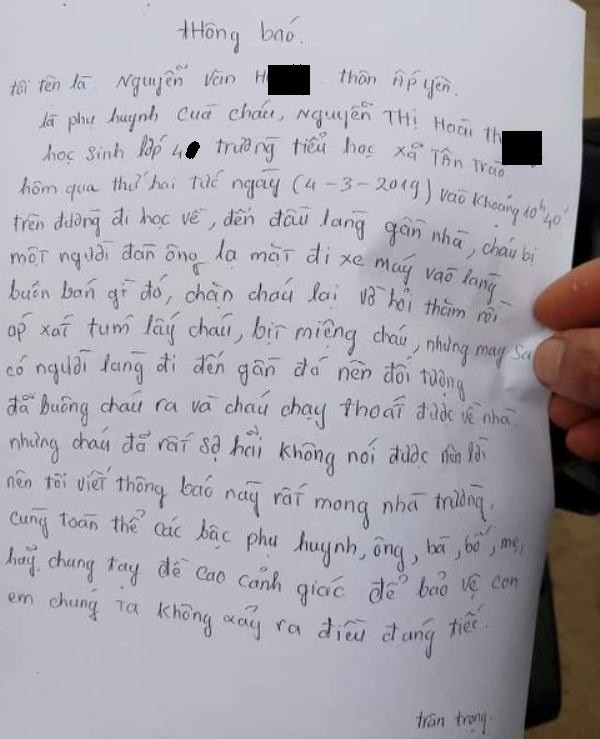 thông baó.
tôi tên là Nguyễn Văn H thôn Ấp yên.
là phụ huynh cuả cháu, Nguyễn THị Hoài th
học sinh lớp 4 trường tiểu học xã Tân Trào.
hôm qua thứ hai tức ngày (4-3-2019) vào khoảng 10h40'
trên đường đi học về, đến đầu làng gần nhà, cháu bị
một người đàn ông lạ mặt đi xe máy vào làng
buôn bán gì đó, chặn cháu lại vờ hỏi thăm rồi
áp xát tum lấy cháu, bịt miệng cháu, nhưng may Sa
có người làng đi đến gần đó nên đối tượng
đã buông cháu ra và cháu chạy thoát được về nhà.
nhưng cháu đã rất sợ hãi không nói được nên lời
nên tôi viết thông báo này rất mong nhà trường,
cùng toàn thể các bậc phụ huynh, ông, bà, bố, mẹ,
hãy chung tay đề cao cảnh giác để bảo vệ con
em chúng ta không xảy ra điều đáng tiếc.
trân trọng.